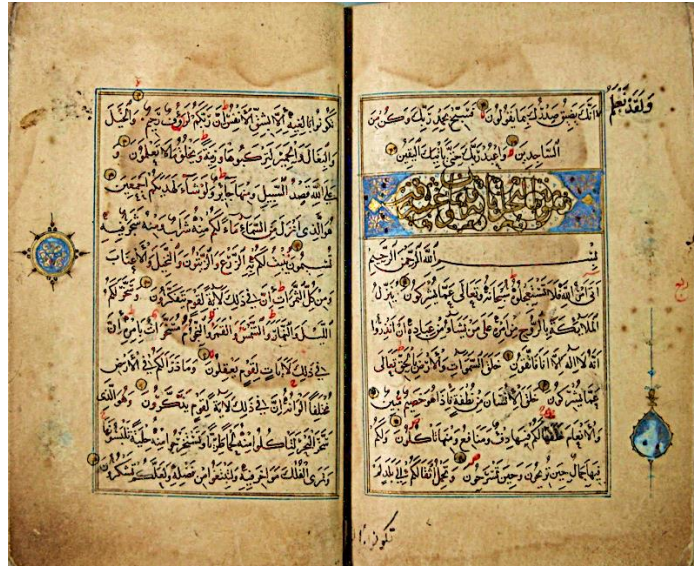 وَلَقَدْ نَعْلَمُ
اَنَّكَ يَضِيقُ صَدْرُكَ بِمَا يَقُولُونَ فَسَبِّحْ بِحَمْدِ رَبِّكَ وَكُنْ مِنَ
السَّاجِدِينَ وَاعْبُدْ رَبَّكَ حَتَّى يَأْتِيَكَ الْيَقِينُ
سورة النحل
بِسْمِ اللَّهِ الرَّحْمَنِ الرَّحِيمِ
اَتَى اَمْرُ اللَّهِ فَلَا تَسْتَعْجِلُوهُ سُبْحَانَهُ وَتَعَالَى عَمَّا يُشْرِكُونَ يُنَزِّلُ
الْمَلَائِكَةَ بِالرُّوحِ مِنْ اَمْرِهِ عَلَى مَنْ يَشَاءُ مِنْ عِبَادِهِ اَنْ اَنْذِرُوا
اَنَّهُ لَا اِلَهَ اِلَّا اَنَا فَاتَّقُونِ خَلَقَ السَّمَوَاتِ وَالْاَرْضَ بِالْحَقِّ تَعَالَى
عَمَّا يُشْرِكُونَ خَلَقَ الْاِنْسَانَ مِنْ نُطْفَةٍ فَاِذَا هُوَ خَصِيمٌ مُبِينٌ
وَالْاَنْعَامَ خَلَقَهَا لَكُمْ فِيهَا دِفْءٌ وَمَنَافِعُ وَمِنْهَا تَأْكُلُونَ وَلَكُمْ
فِيهَا جَمَالٌ حِينَ تُرِيحُونَ وَحِينَ تَسْرَحُونَ وَتَحْمِلُ اَثْقَالَكُمْ اِلَى بَلَدٍ لَمْ
تكونوا
تَكُونُوا بَالِغِيهِ اِلَّا بِشِقِّ الْاَنْفُسِ اِنَّ رَبَّكُمْ لَرَؤُفٌ رَحِيمٌ وَالْخَيْلَ
وَالْبِغَالَ وَالْحَمِيرَ لِتَرْكَبُوهَا وَزِينَةً وَيَخْلُقُ مَا لَا تَعْلَمُونَ وَ
عَلَى اللَّهِ قَصْدُ السَّبِيلِ وَمِنْهَا جَائِرٌ وَلَوْ شَاءَ لَهَدَيكُمْ اَجْمَعِينَ
هُوَ الَّذِي اَنْزَلَ مِنَ السَّمَاءِ مَاءً لَكُمْ مِنْهُ شَرَابٌ وَمِنْهُ شَجَرٌ فِيهِ
تُسِيمُونَ يُنْبِتُ لَكُمْ بِهِ الزَّرْعَ وَالزَّيْتُونَ وَالنَّخِيلَ وَالْاَعْنَابَ
وَمِنْ كُلِّ الثَّمَرَاتِ اِنَّ فِي ذَلِكَ لَاٰيَةً لِقَوْمٍ يَتَفَكَّرُونَ وَسَخَّرَ لَكُمُ
اللَّيْلَ وَالنَّهَارَ وَالشَّمْسَ وَالْقَمَرَ وَالنُّجُومُ مُسَخَّرَاتٌ بِاَمْرِهِ اِنَّ
فِي ذَلِكَ لَاٰيَاتٍ لِقَوْمٍ يَعْقِلُونَ وَمَا ذَرَاَ لَكُمْ فِي الْاَرْضِ
مُخْتَلِفًا اَلْوَانُهُ اِنَّ فِي ذَلِكَ لَاٰيَةً لِقَوْمٍ يَذَّكَّرُونَ وَهُوَ الَّذِي
سَخَّرَ الْبَحْرَ لِتَأْكُلُوا مِنْهُ لَحْمًا طَرِيًّا وَتَسْتَخْرِجُوا مِنْهُ حِلْيَةً تَلْبَسُونَهَا
وَتَرَى الْفُلْكَ مَوَاخِرَ فِيهِ وَلِتَبْتَغُوا مِنْ فَضْلِهِ وَلَعَلَّكُمْ تَشْكُرُونَ